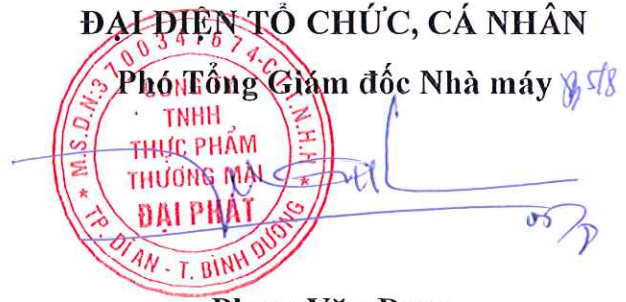 ĐẠI DIỆN TỔ CHỨC, CÁ NHÂN
Phó Tổng Giám đốc Nhà máy
5/8
M.S.D.N:3700347674-C.T.T.N.H.H
CÔNG TY
TNHH
THỰC PHẨM
THƯƠNG MẠI
ĐẠI PHÁT
TP. DĨ AN - T. BÌNH DƯƠNG